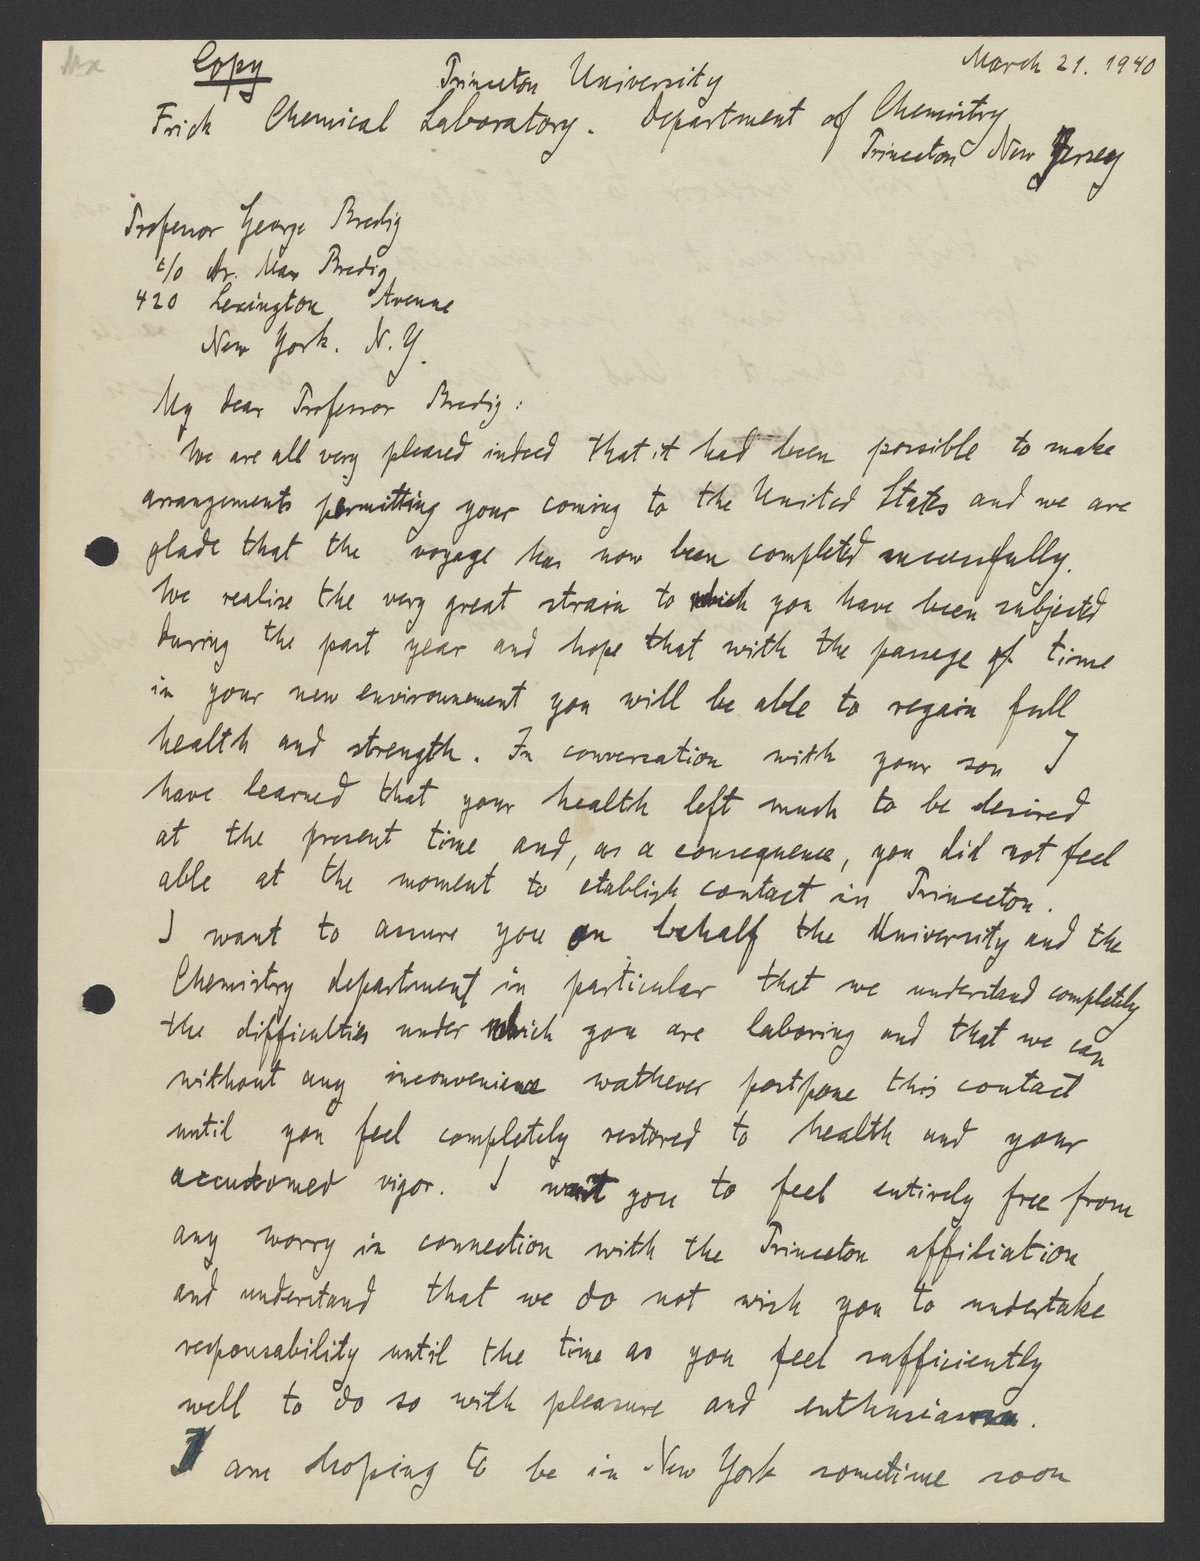 Copy
March 21. 1940
Princeton University
Frick Chemical Laboratory. Department of Chemistry
Princeton New Jersey
Professor George Bredig
c/o Dr. Max Bredig
420 Lexington Avenue
New York. N.Y.
My dear Professor Bredig:
We are all very pleased indeed that it had been possible to make
arrangements permitting your coming to the United States and we are
glade that the voyage has now been completed successfully.
We realise the very great strain to which you have been subjected
during the past year and hope that with the passege of time
in your new environnement you will be able to regain full
health and strength. In conversation with your son I
have learned that your health left much to be desired
at the present time and, as a consequence, you did not feel
able at the moment to etablish contact in Princeton.
I want to assure you on behalf the University and the
Chemistry department in particular that we understand completely
the difficulties under which you are laboring and that we can
without any inconvenience wathever postpone this contact
until you feel completely restored to health and your
accustomed vigor. I want you to feel entirely free from
any worry in connection with the Princeton affiliation,
and understand that we do not wish you to undertake
responsability until the time as you feel sufficiently
well to do so with pleasure and enthusiasm.
I am hoping to be in New York sometime soon